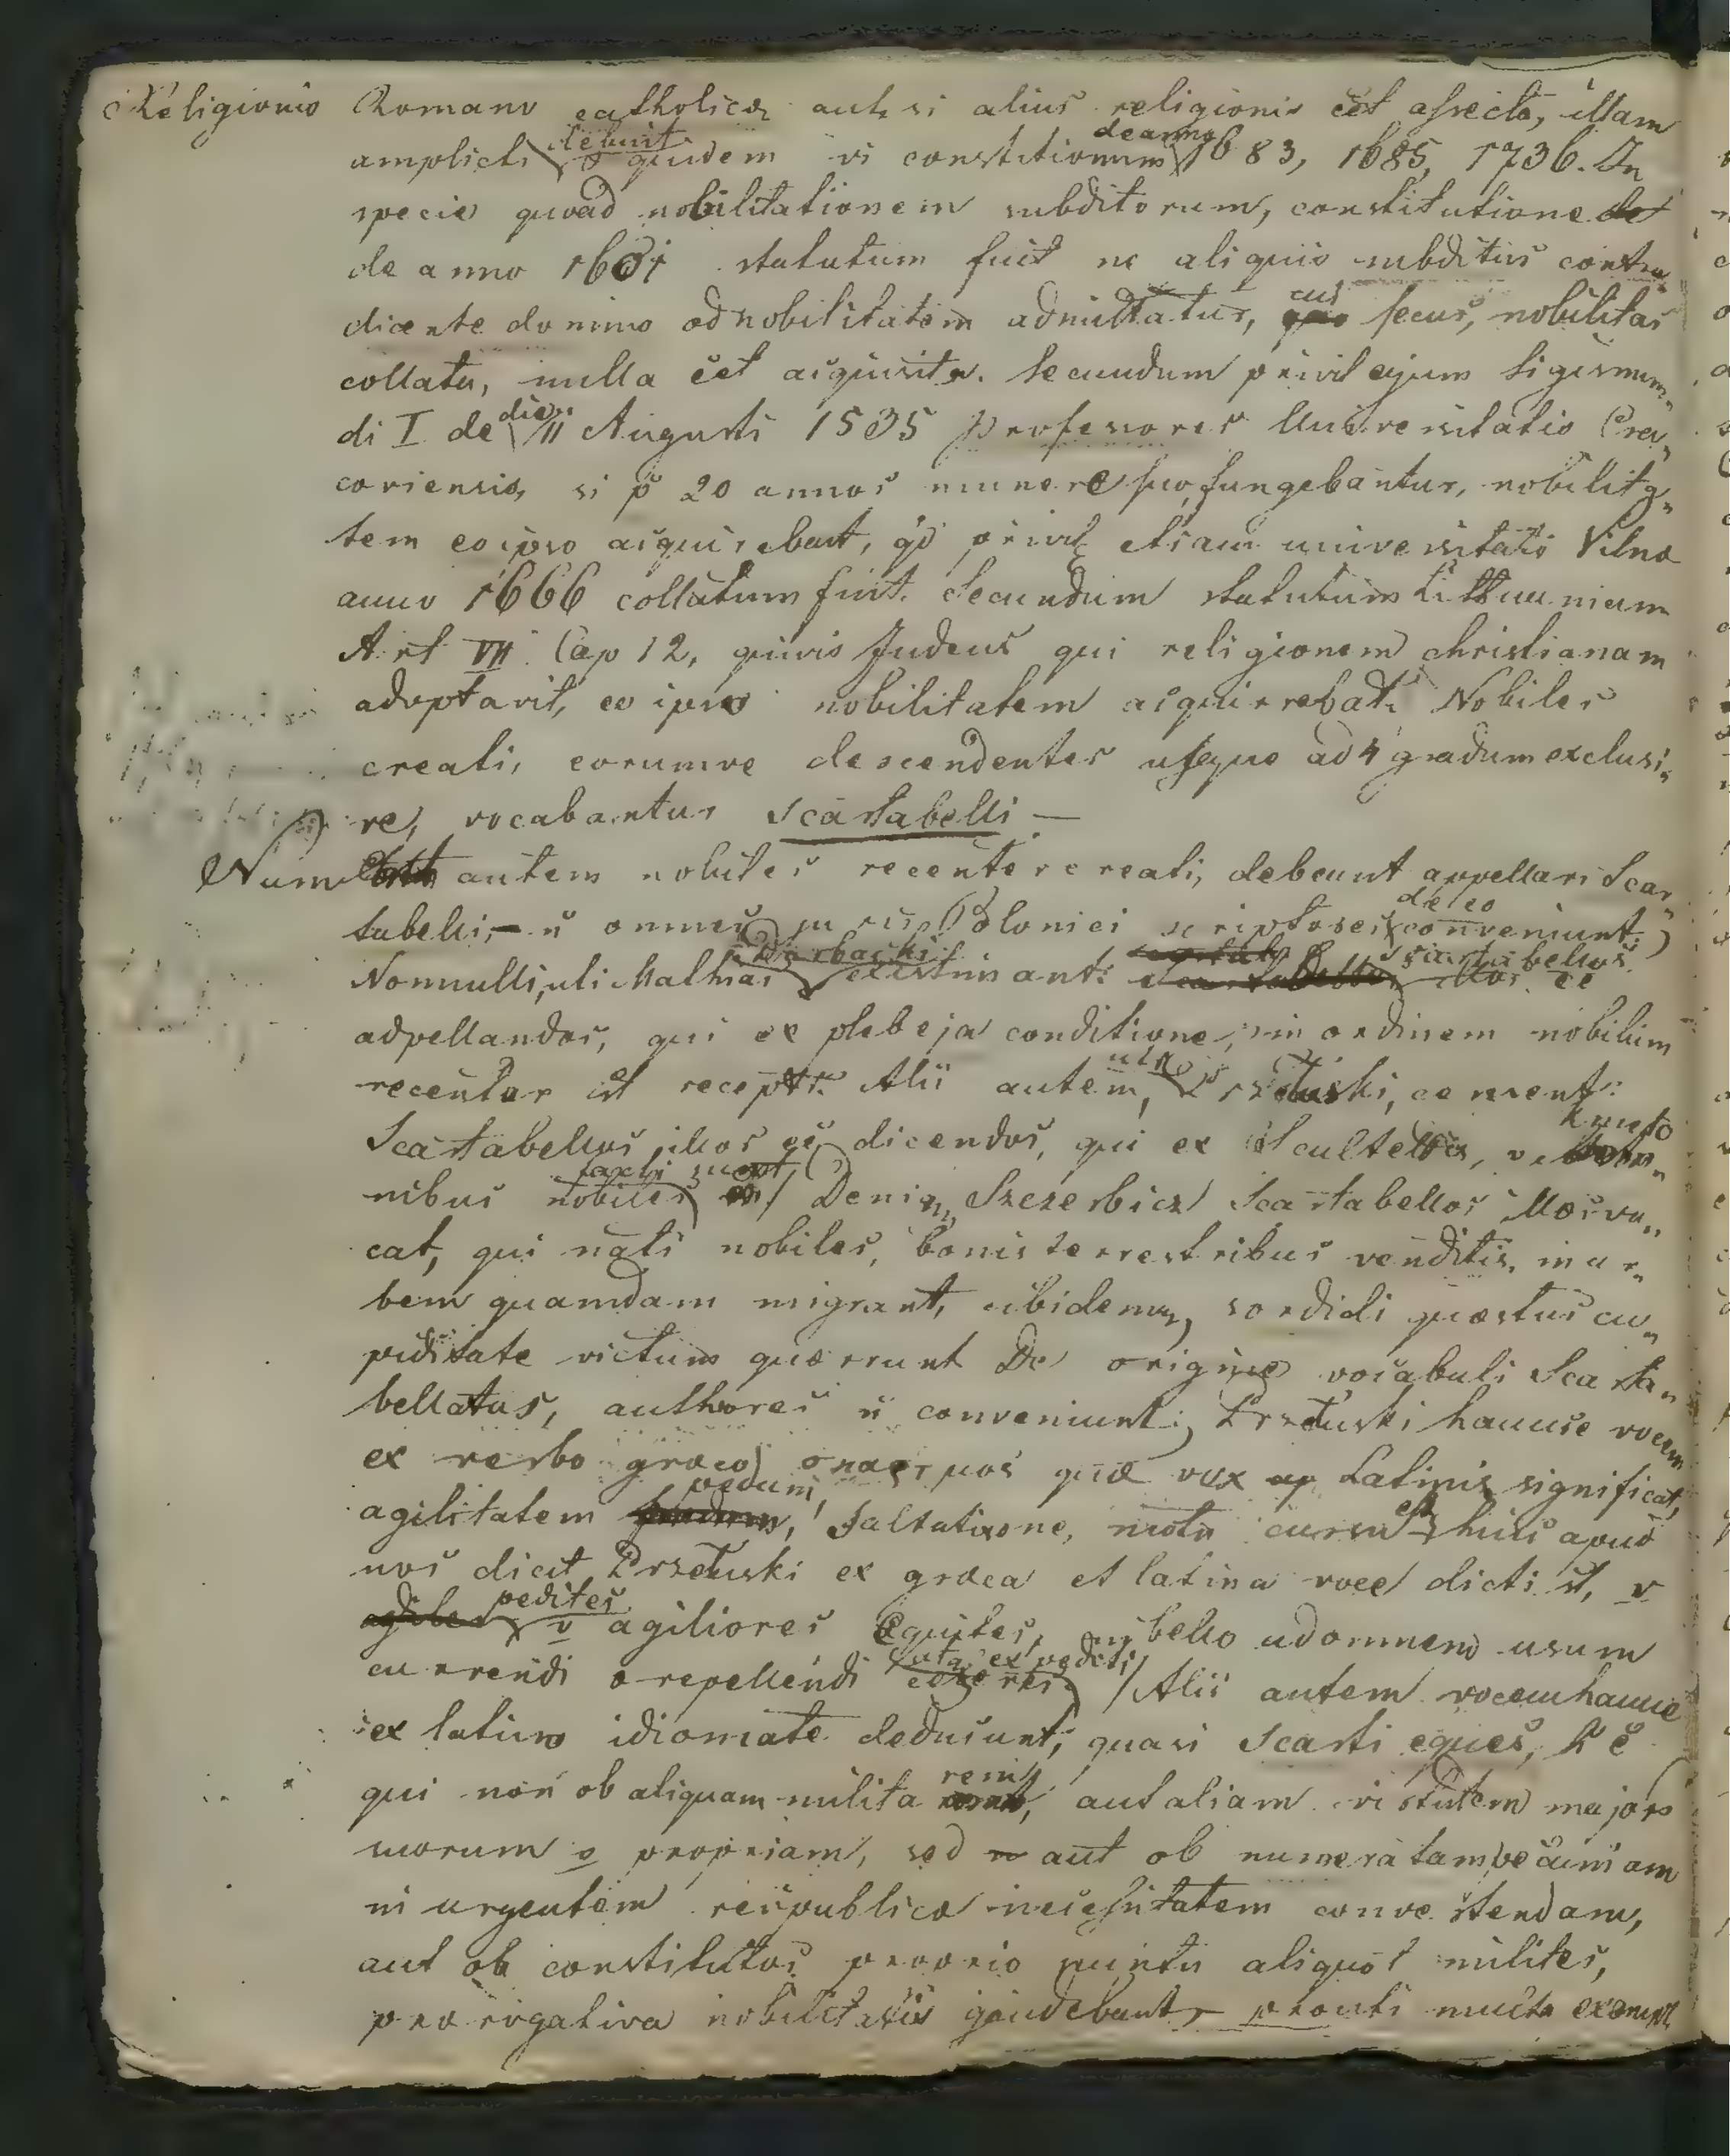 Religionis Romano catholicæ aut si alius religionis est asseclo, illam
amplecti debuit quidem vi constitutionum de anno 1683, 1685, 1736. In
specie quoad nobilitationem subditorum, constitutione
de anno 1601 statutum fuit ne aliquis subditus contra
dicente domino ad nobilitatem admittatur, secus, nobilitas
collata, nulla est acquisita. Secundum privilejum Sigismun„
di I de die 11 Augusti 1535 professores Universitatis Cra„
coviensis, si p 20 annos munere suo fungebantur, nobilita„
tem eo ipso acquirebant, qd privil etiam universitatis Vilna
anno 1666 collatum fuit. Secundum statutum Littuanium
Art VII Cap 12, quivis Judeus qui religionem christianam
adoptavit, eo ipso nobilitatem acquirrebat. Nobiles
creati, eorumve descendentes usque ad 4 gradum exclusi„
ve, vocabantur Scartabelli —
Num autem nobiles recenter creati, debeant appellari Scar„
tabelli, – n omnes juris Polonici scriptores de eo conveniunt;
Nonnulli, uti Mathias existimant: Scartabellos illos ee
adpellandos, qui ex plebeja conditione, in ordinem nobilium
recenter st recepti. Alii autem, uti Przełuski, censent:
Scartabellos, illos ee dicendos, qui ex Scultetis, v kmeto„
nibus nobiles facti sunt, / Deniq Szczerbicz Scartabellos illos vo„
cat, qui nati nobiles, bonis terrestribus venditis, in ur„
bem quamdam migrant, ibidemq, sordidi quæstus cu„
piditate victum quærrunt De origine vocabuli Scarta„
bellatus, authores n conveniunt; Przełuski hancce vocem
ex verbo græco quæ vox ap Latinis significat,
agilitatem pedum, saltatione, motu cursu hinc apud
nos dicit Przełuski ex græca et latina voce dicti st, v
pedites v agiliores Equites, in bello ad omnem usum
currendi o repellendi expediti / Alii autem vocem hancce
ex latino idiomate deducunt, quasi Scarti eques, h e
qui non ob aliquam militarem, aut aliam virtutem majo
morum v propriam, sed aut ob numeratam pecuniam
in urgentem reipublicæ necessitatem convertendam,
aut ob constitutos proprio aliquot milites,
prærogativa nobilitatis gaudebant, prouti multa exempl